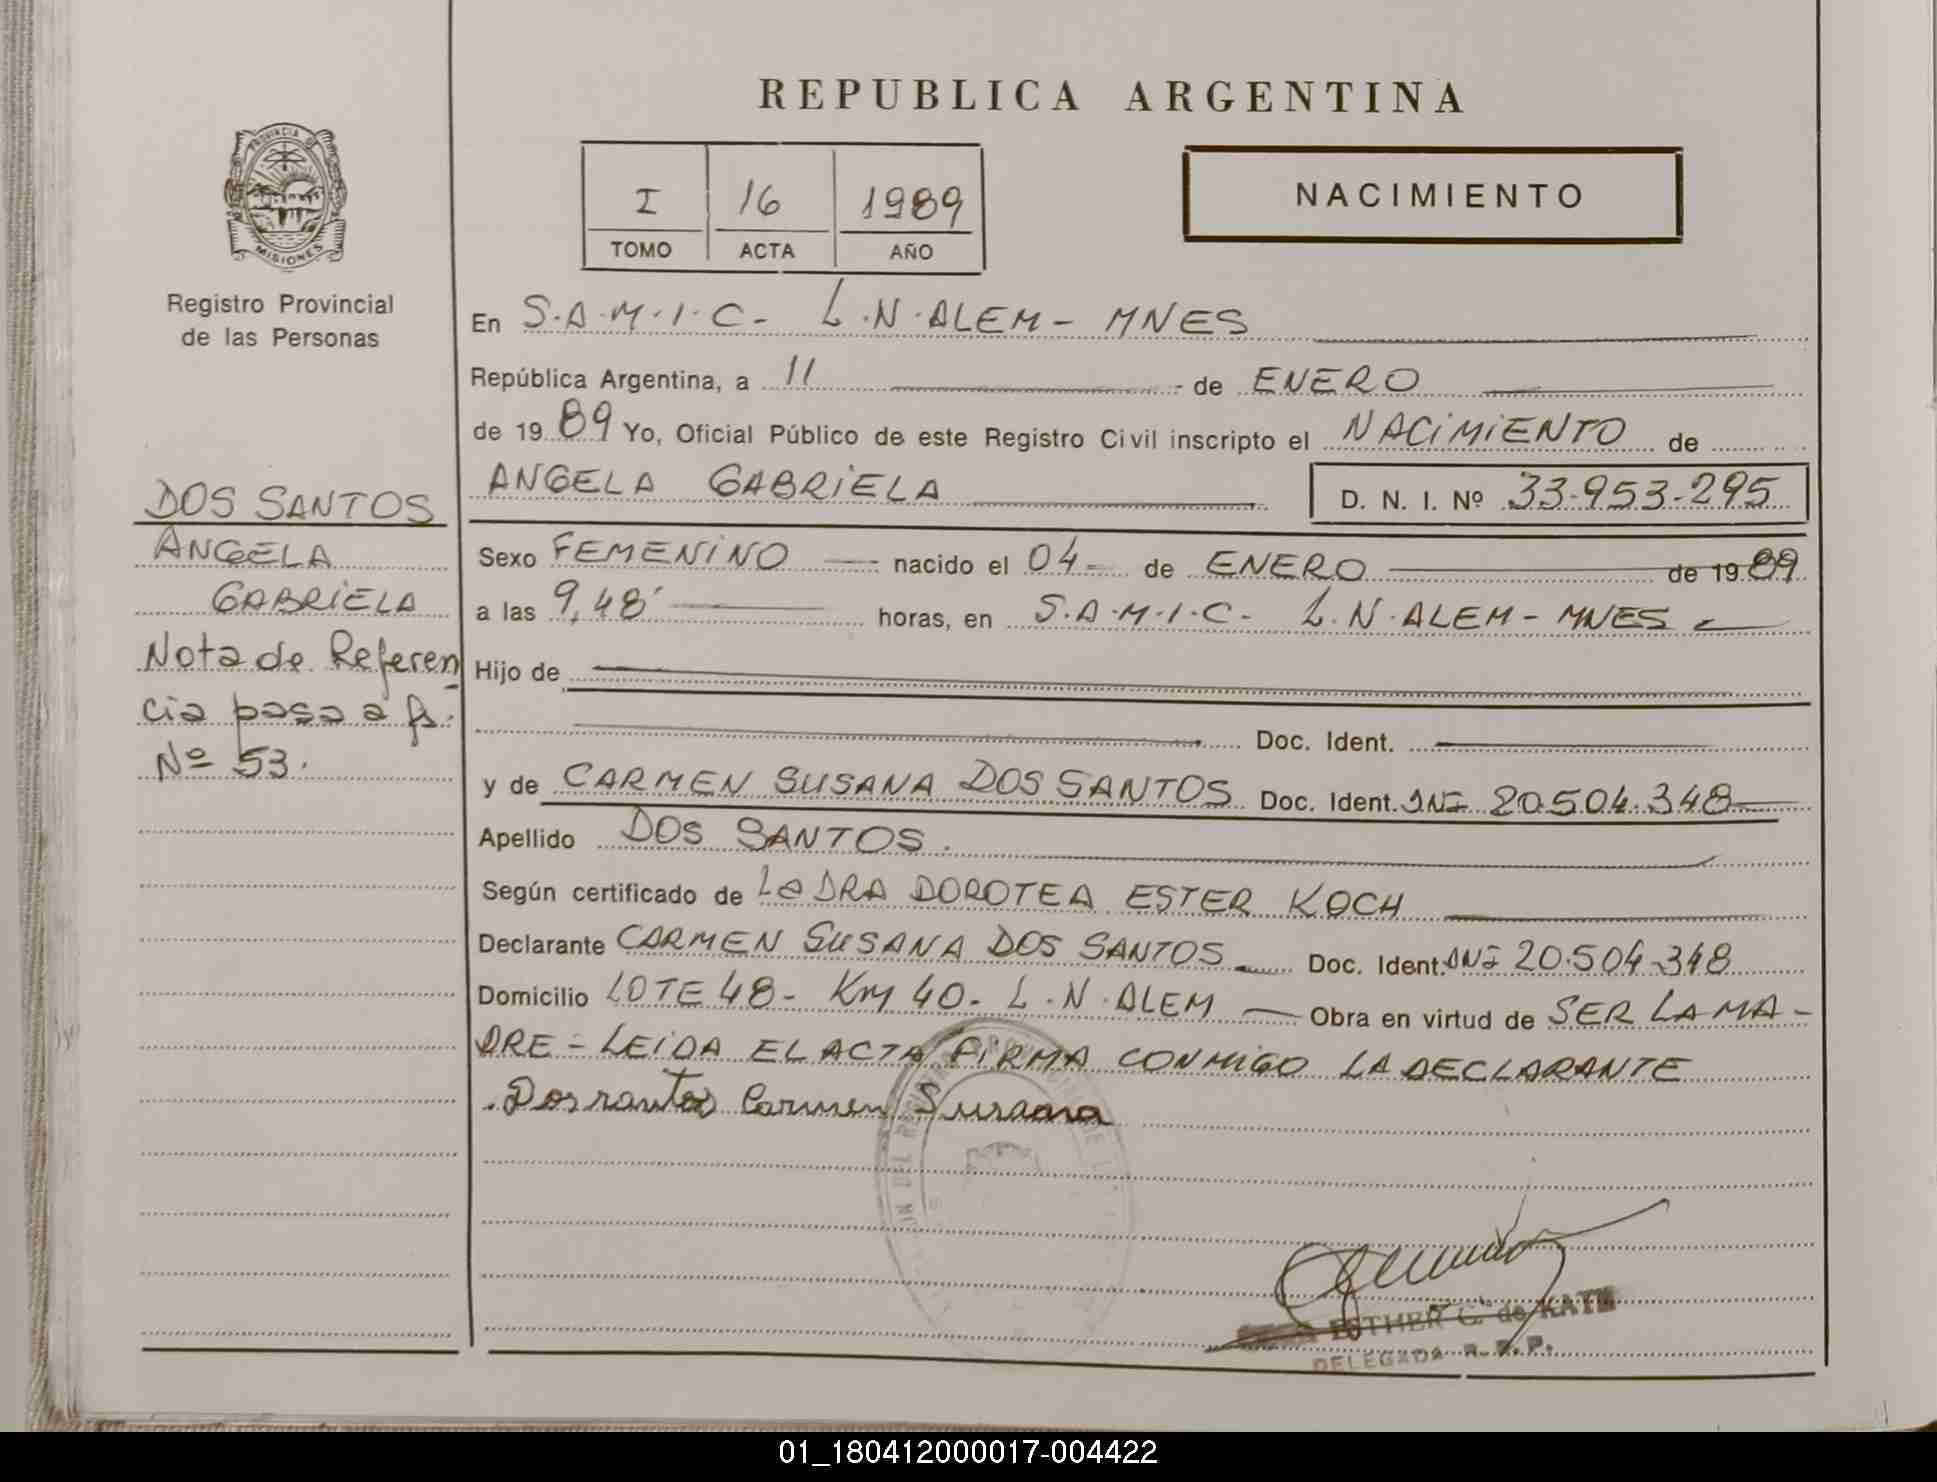 REPUBLICA ARGENTINA
PROVINCIA DE
MISIONES
Registro Provincial
de las Personas
I 16 1989
TOMO ACTA AÑO
NACIMIENTO
DOS SANTOS
ANGELA
GABRIELA
Nota de Referen
cia pasa a fs.
Nº 53.
En S.A.M.I.C- L.N.ALEM- MNES
República Argentina, a 11 de ENERO
de 1989 Yo, Oficial Público de este Registro Civil inscripto el NACIMIENTO de
ANGELA GABRIELA D. N. I. Nº 33.953.295
Sexo FEMENINO nacido el 04 de ENERO de 1989
a las 9,48' horas, en S.A.M.I.C- L.N.ALEM- MNES
Hijo de
Doc. Ident.
y de CARMEN SUSANA DOS SANTOS Doc. Ident. DNI 20.504.348
Apellido DOS SANTOS.
Según certificado de La DRA DOROTEA ESTER KOCH
Declarante CARMEN SUSANA DOS SANTOS Doc. Ident. DNI 20.504.348
Domicilio LOTE 48- KM 40- L.N.ALEM Obra en virtud de SER LA MA-
DRE- LEIDA EL ACTA FIRMA CONMIGO LA DECLARANTE
Dos santos Carmen Susana
ESTHER G. de KATZ
DELEGADA R.P.P.
01_180412000017-004422